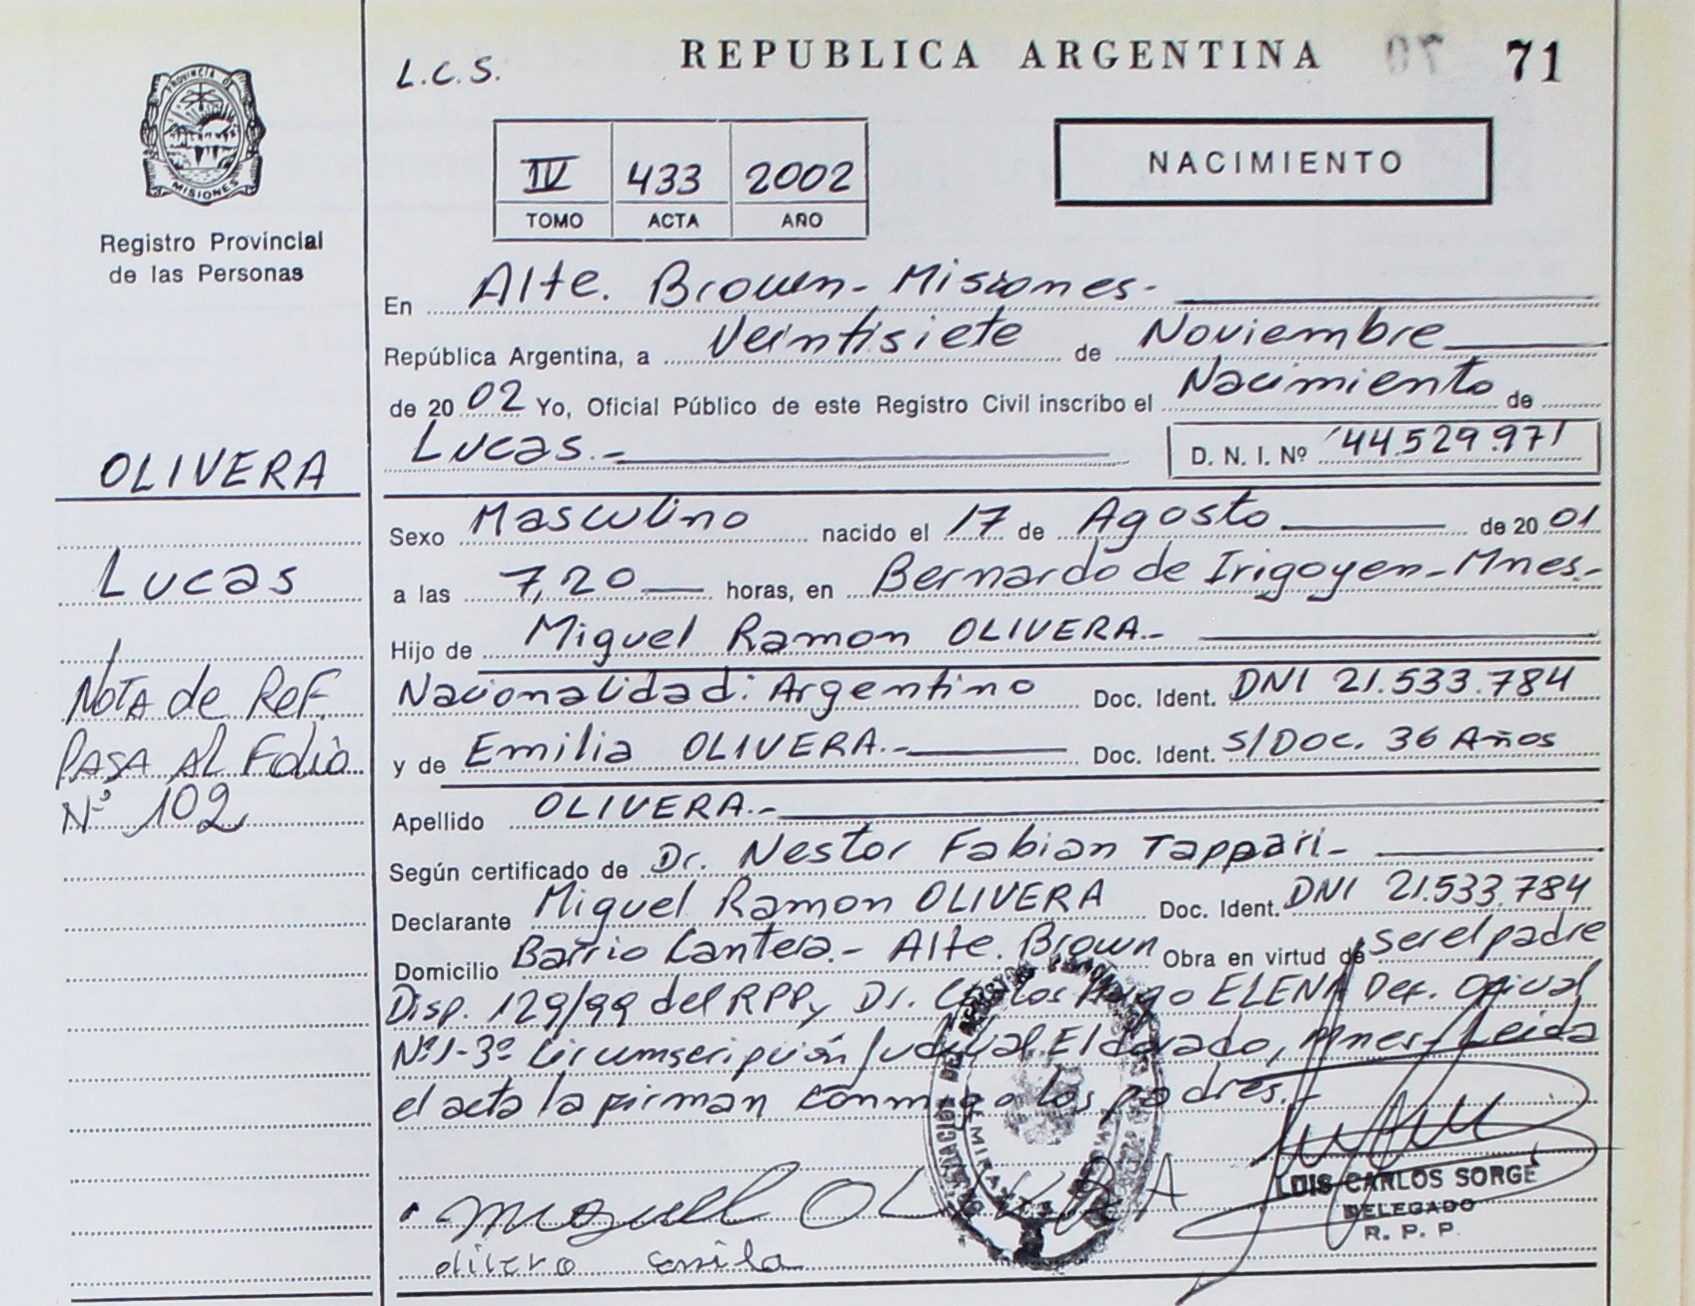 L.C.S. REPUBLICA ARGENTINA 70 71
PROVINCIA DE
MISIONES
IV 433 2002
TOMO ACTA AÑO
NACIMIENTO
Registro Provincial
de las Personas
En Alte. Brown - Misiones -
República Argentina, a Veintisiete de Noviembre
de 20 02 Yo, Oficial Público de este Registro Civil inscribo el Nacimiento de
Lucas.- D. N. I. Nº 44.529.971
OLIVERA
Sexo Masculino nacido el 17 de Agosto de 20 01
Lucas
a las 7,20 horas, en Bernardo de Irigoyen - Mnes.-
Hijo de Miguel Ramon OLIVERA.-
Nacionalidad: Argentino Doc. Ident. DNI 21.533.784
y de Emilia OLIVERA.- Doc. Ident. S/Doc. 36 Años
Nota de Ref.
PASA AL Folio
Nº 102
Apellido OLIVERA.-
Según certificado de Dr. Nestor Fabian Tappari -
Declarante Miguel Ramon OLIVERA Doc. Ident. DNI 21.533.784
Domicilio Barrio Cantera.- Alte. Brown Obra en virtud de ser el padre
Disp. 129/99 del RPP, y Dr. Carlos Hugo ELENA Def. Oficial
Nº1-3º Circumscripción Judicial Eldorado, Mnes. Leida
el acta la firman conmigo los padres.-
Miguel OLIVERA
LUIS CARLOS SORGE
DELEGADO
R. P. P.
olivera emila